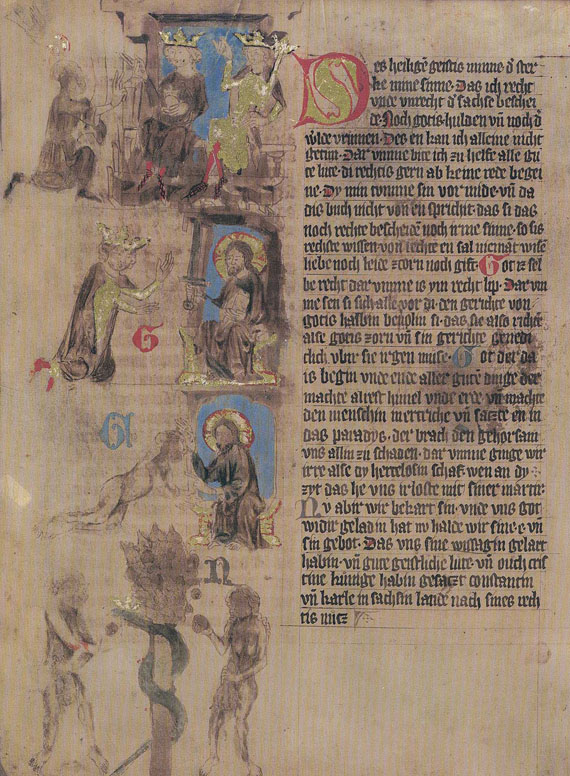 Des heiligē geistis minne d' ster
ke mine sinne. Das ich recht
vnde vnrecht d' sachse beschei
de. Noch gotis hulden vn̄ noch d'
w'lde vrumen. Des en kan ich alleine nicht
getun. Dar vmme bite ich zu helfe alle gu
te lute. di rechtis gern ab keine rede begei
ne. Dy min tumme sin vor mide. vn̄ da
dis buch nicht von en spricht. das si das
noch rechte bescheidē noch irme sinne. so sis
rechste wissen. von rechte en sal nimāt wisē
liebe noch leide zorn noch gift. Got iz sel
be recht dar vmme is ym recht lip. Dar vm
me sen si sich alle vor. di den gerichte von
gotis halbin beuoln si. das sie also richtē
alse gotis zorn vn̄ sin gerichte genedi
clich vbir sie irgen muse. Got der da
is begin vnde ende aller gutē dinge der
machte alrest himel vnde erde vn̄ machte
den menschin in ertriche vn̄ saczte en in
das paradys. der brach den gehorsam
vns allin zu schaden. dar vmme ginge wir
irre alse dy hertelosin schaf. wen an dy
zyt das he vns irloste mit siner martir.
Nv abir wir bekart sin. vnde vns got
widir geladin hat nv halde wir sine e vn̄
sin gebot. Das vns sine wissagin gelart
habin. vn̄ gute geistliche lute. vn̄ ouch cris
tine kunige habin gesaczt constantin
vn̄ karle in sachsin lande nach sines rech
tis
G
G
N